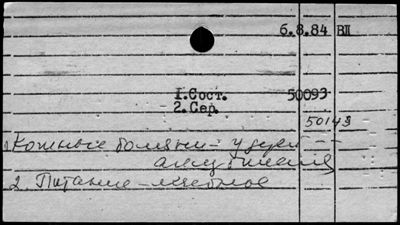 6.8.84 ВП
1.Сост. 50093
2.Сер.
50143
1 Кожные болезни - у детей -
2. Питание - лечебное